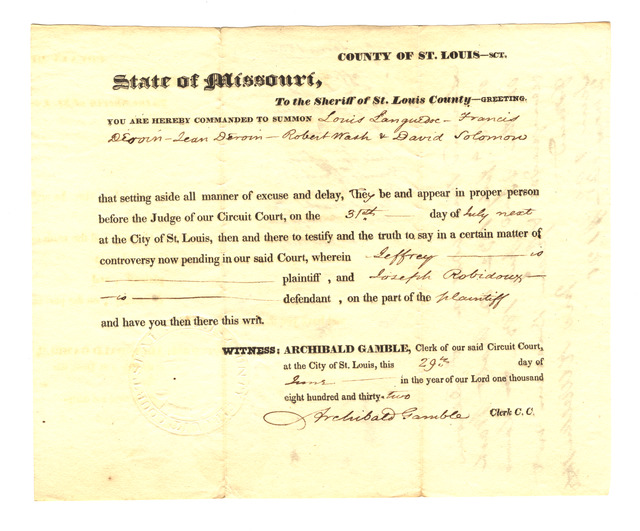 COUNTY OF ST. LOUIS—SCT.
State of Missouri,
To the Sheriff of St. Louis County—GREETING.
YOU ARE HEREBY COMMANDED TO SUMMON Louis Languedoc - Francis
Deroin - Jean Deroin - Robert Wash & David Solomon
that setting aside all manner of excuse and delay, They be and appear in proper person
before the Judge of our Circuit Court, on the 31st day of July next
at the City of St. Louis, then and there to testify and the truth to say in a certain matter of
controversy now pending in our said Court, wherein Jeffrey is
plaintiff , and Joseph Robidoux
is defendant , on the part of the plaintiff
and have you then there this writ.
WITNESS: ARCHIBALD GAMBLE, Clerk of our said Circuit Court,
at the City of St. Louis, this 29th day of
June in the year of our Lord one thousand
eight hundred and thirty-two
Archibald Gamble Clerk C. C.